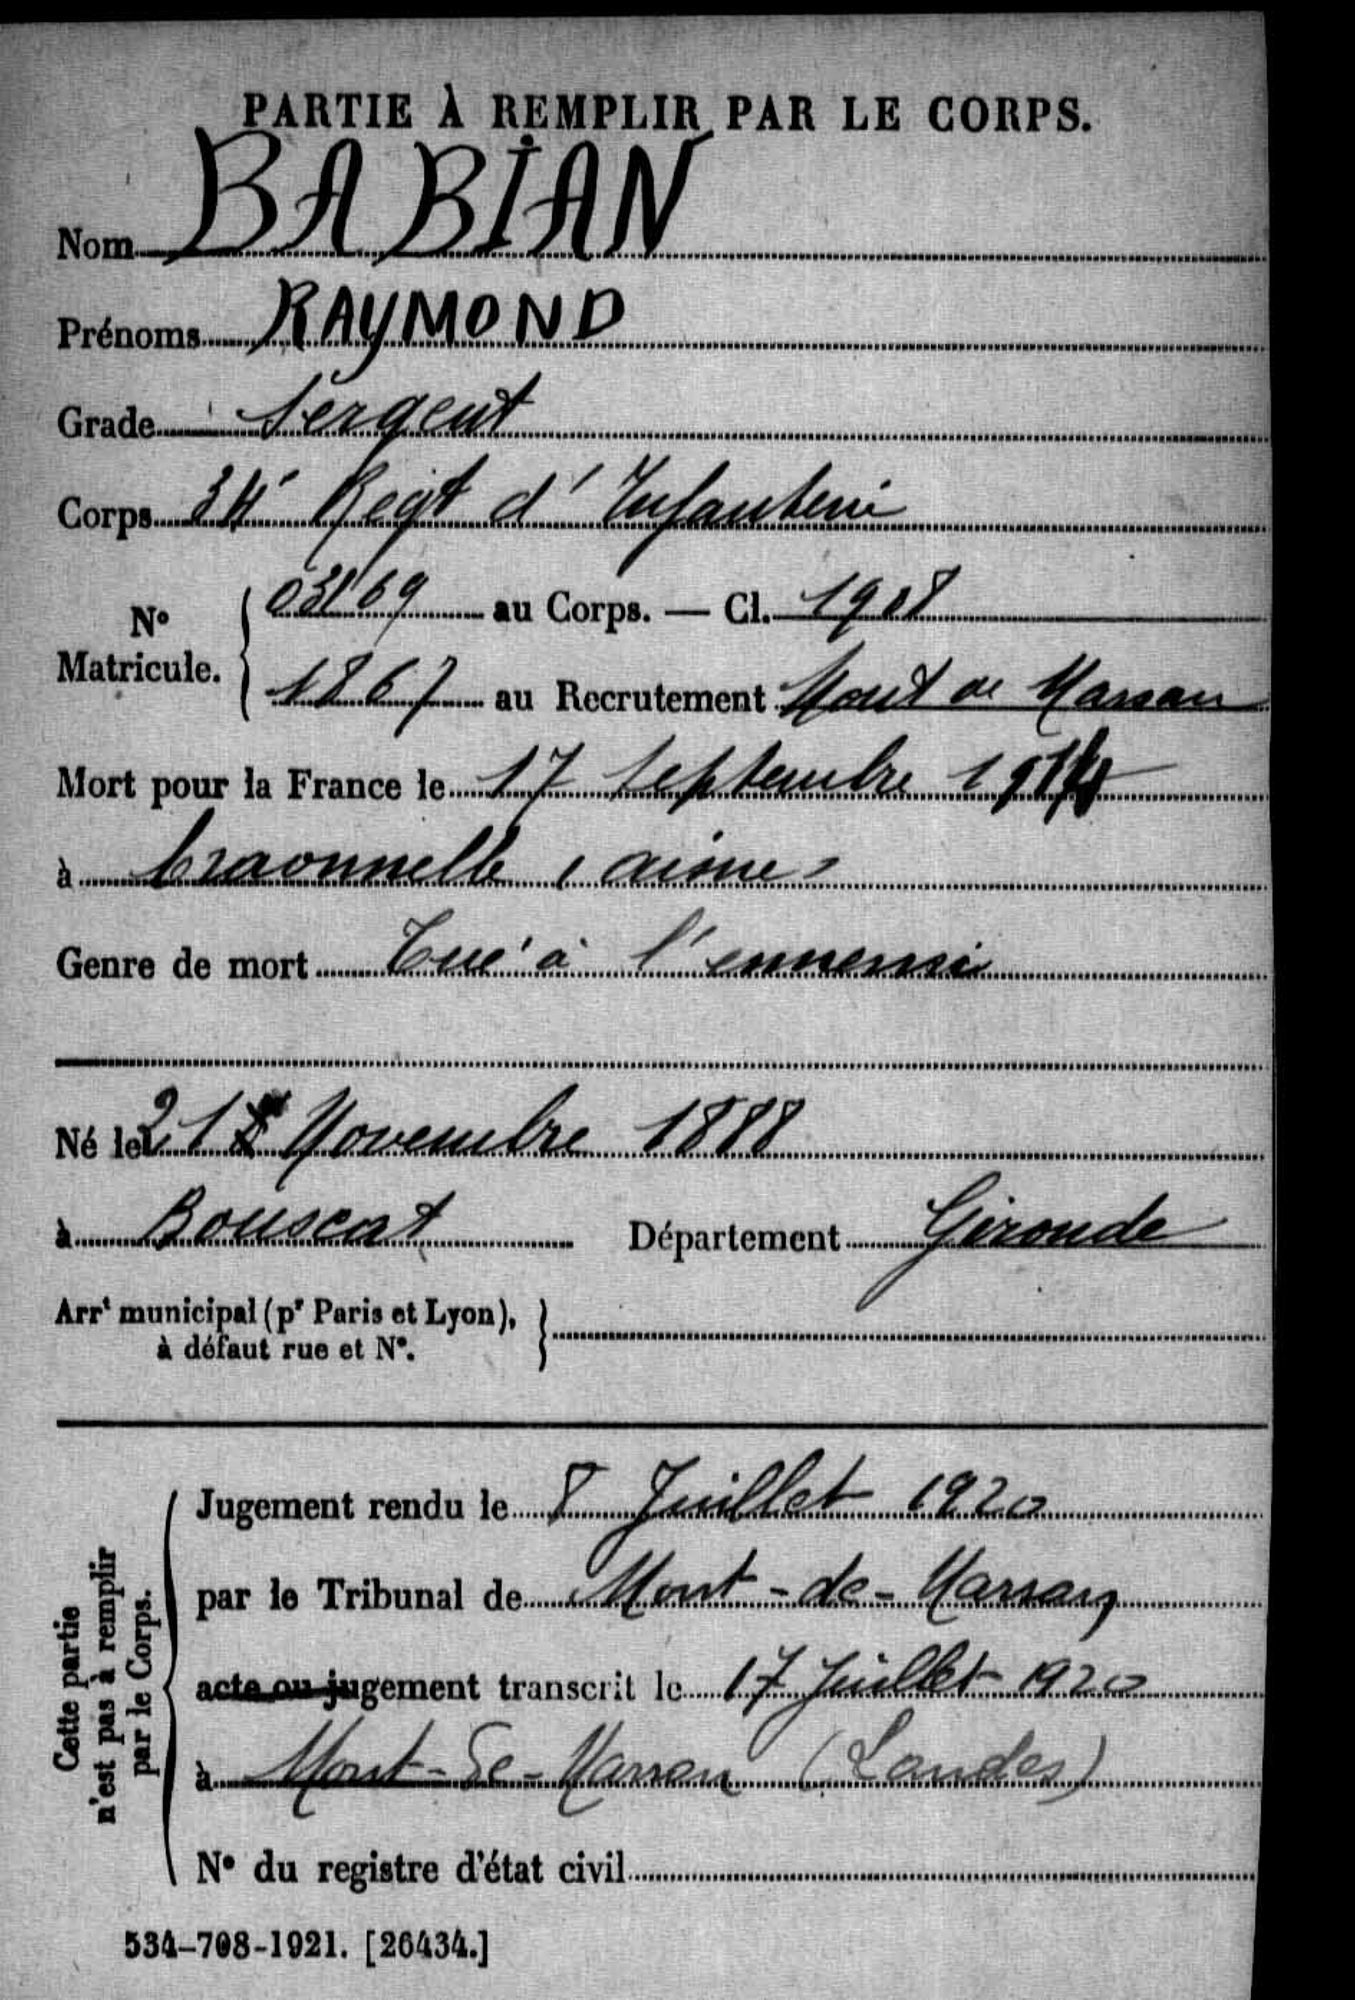 PARTIE À REMPLIR PAR LE CORPS.
Nom BABIAN
Prénoms RAYMOND
Grade Sergent
Corps 34e Regt d'Infanterie
No Matricule. 03169 au Corps. — Cl. 1908
1867 au Recrutement Mont de Marsan
Mort pour la France le 17 Septembre 1914
à Craonnelle (aisne)
Genre de mort Tué à l'ennemi
Né le 21 Novembre 1888
à Bouscat Département Gironde
Arrt municipal (pr Paris et Lyon),
à défaut rue et No.
Cette partie
n'est pas à remplir
par le Corps.
Jugement rendu le 8 Juillet 1920
par le Tribunal de Mont-de-Marsan
acte ou jugement transcrit le 17 Juillet 1920
à Mont-de-Marsan (Landes)
No du registre d'état civil
534-708-1921. [26434.]